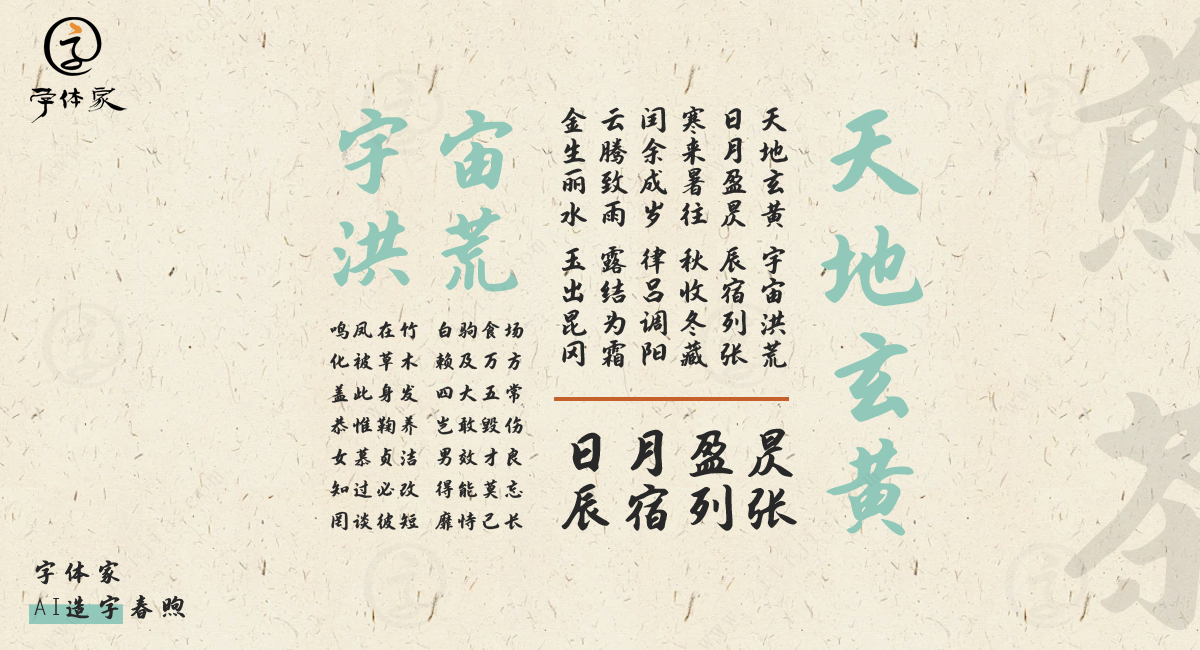 字体家
天地玄黄
天地玄黄 宇宙洪荒
日月盈昃 辰宿列张
寒来暑往 秋收冬藏
闰余成岁 律吕调阳
云腾致雨 露结为霜
金生丽水 玉出昆冈
日月盈昃
辰宿列张
宇宙
洪荒
鸣凤在竹 白驹食场
化被草木 赖及万方
盖此身发 四大五常
恭惟鞠养 岂敢毁伤
女慕贞洁 男效才良
知过必改 得能莫忘
罔谈彼短 靡恃己长
字体家
AI造字春煦
煎茶